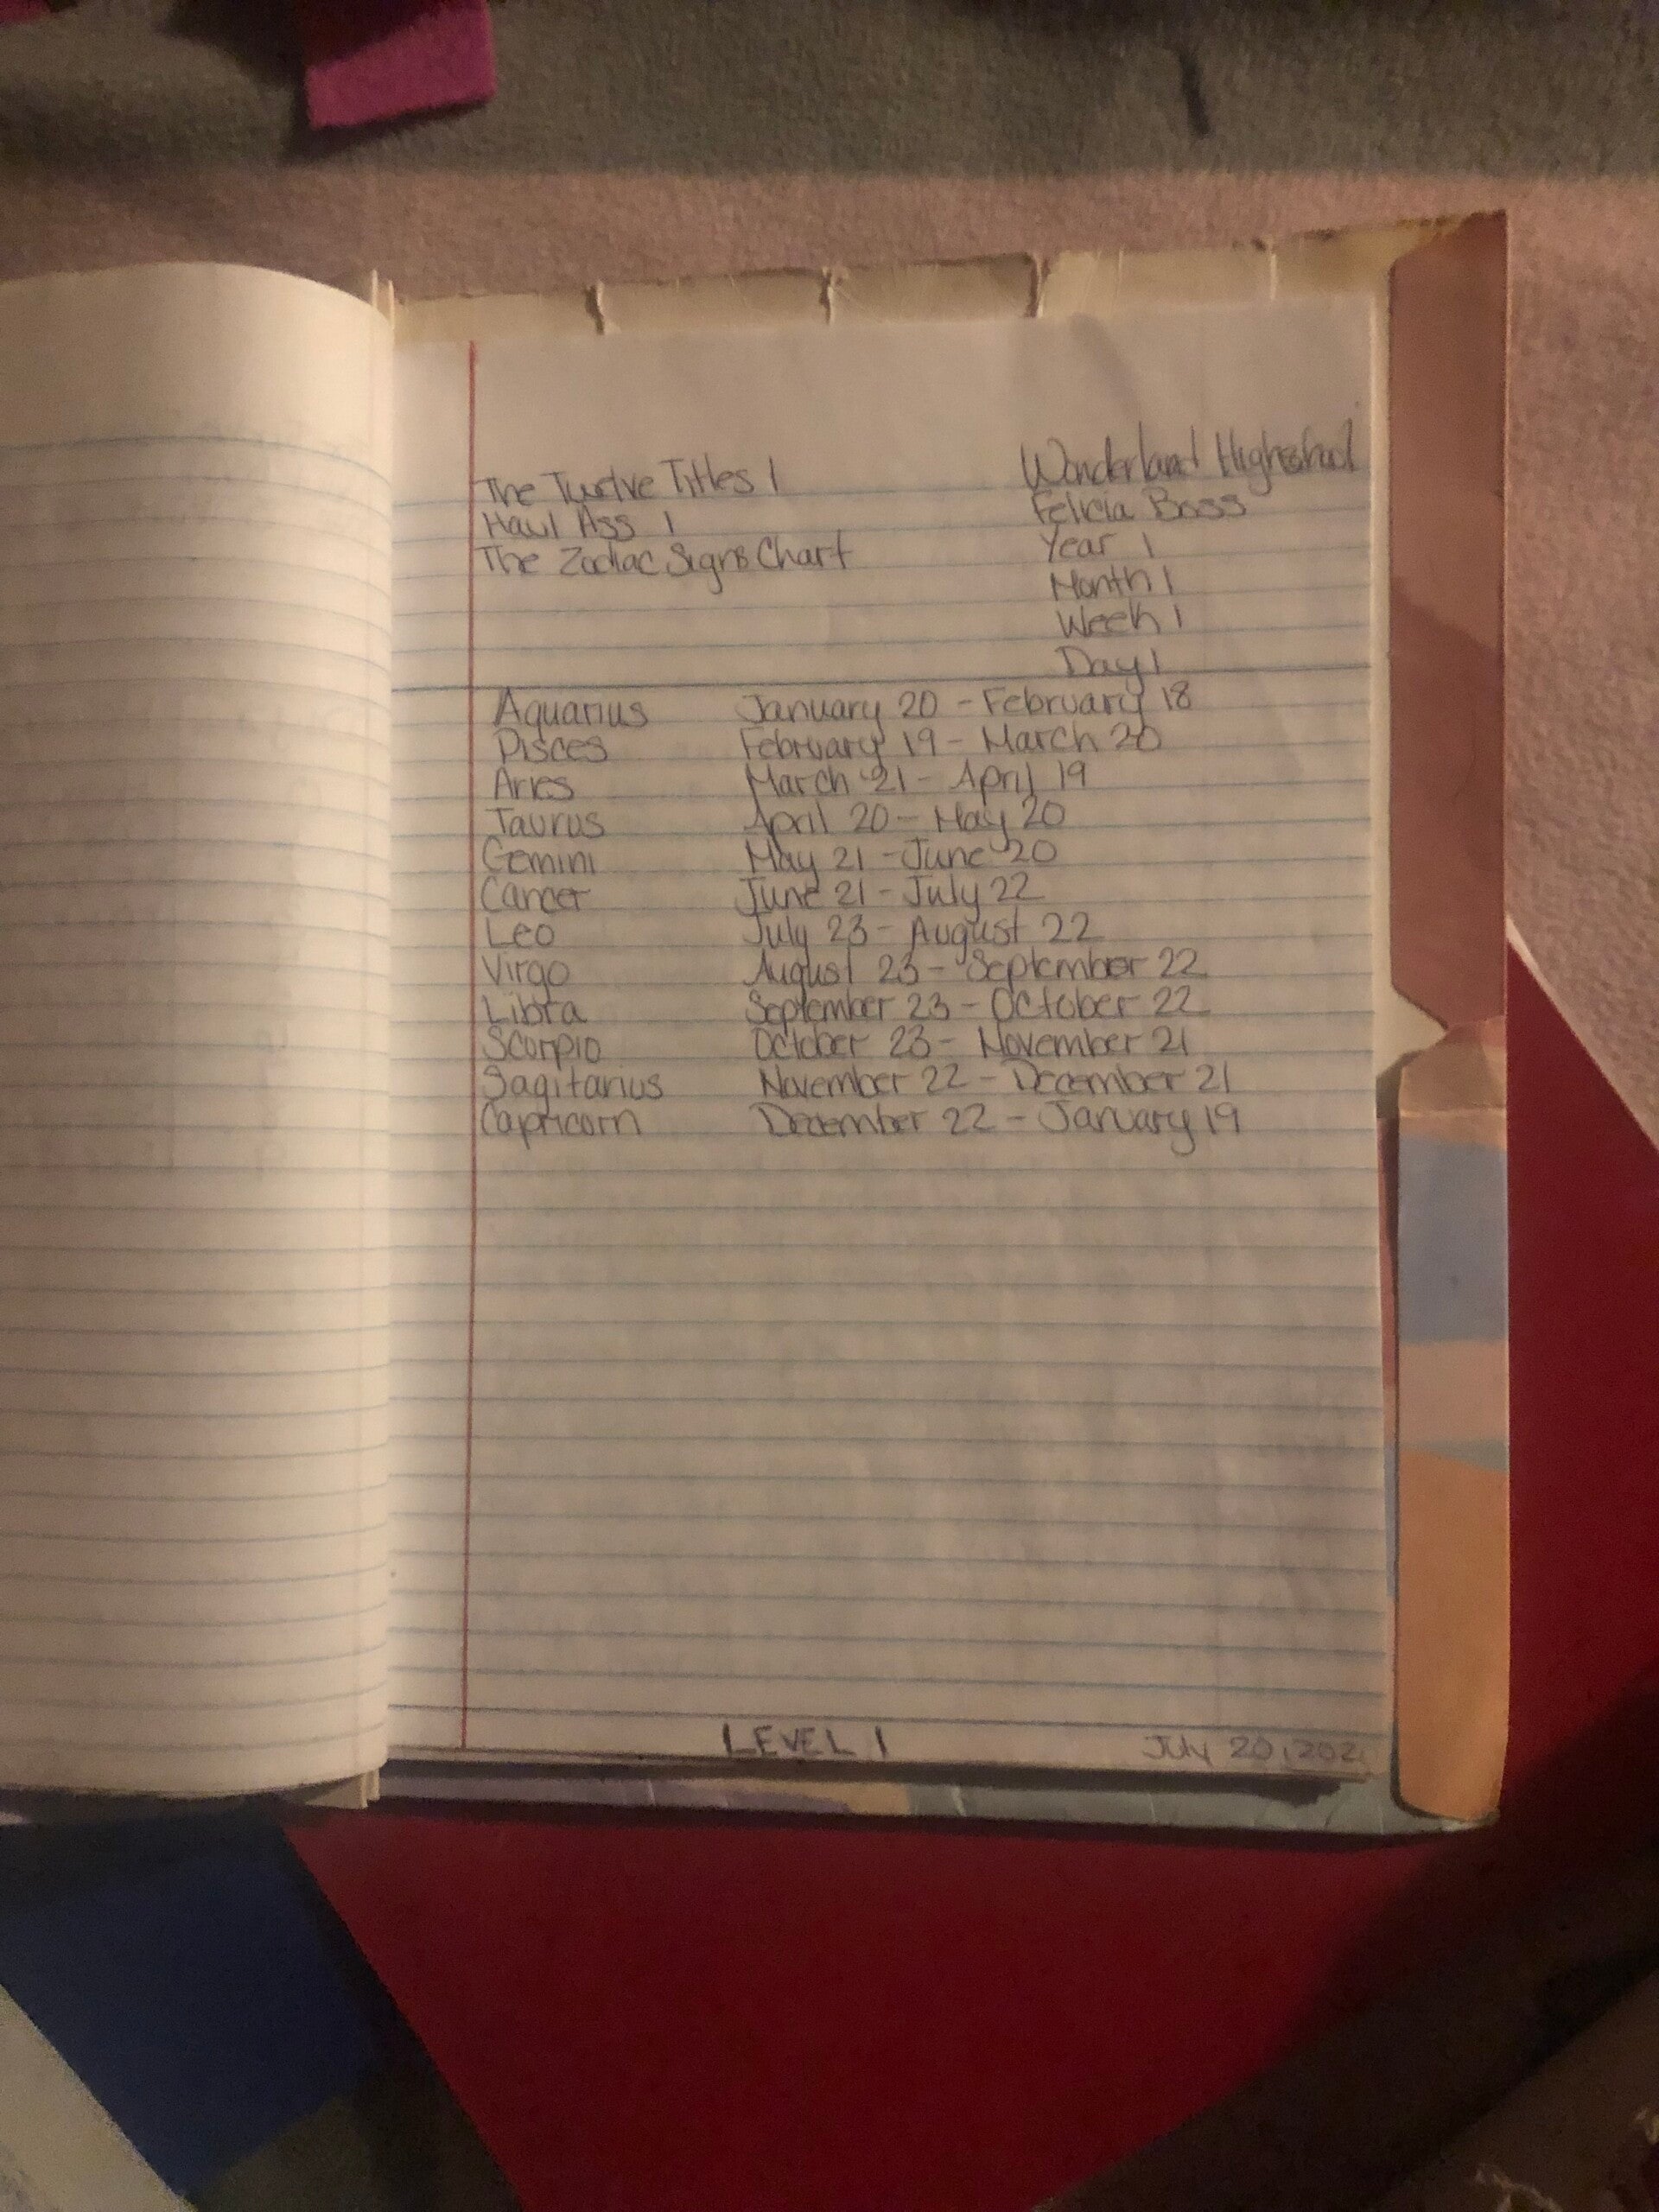 The Twelve Titles 1
Haul Ass 1
The Zodiac Signs Chart
Wonderland Highschool
Felicia Boss
Year 1
Month 1
Week 1
Day 1
Aquarius January 20 - February 18
Pisces February 19 - March 20
Aries March 21 - April 19
Taurus April 20 - May 20
Gemini May 21 - June 20
Cancer June 21 - July 22
Leo July 23 - August 22
Virgo August 23 - September 22
Libra September 23 - October 22
Scorpio October 23 - November 21
Sagitarius November 22 - December 21
Capricorn December 22 - January 19
LEVEL 1
July 20,